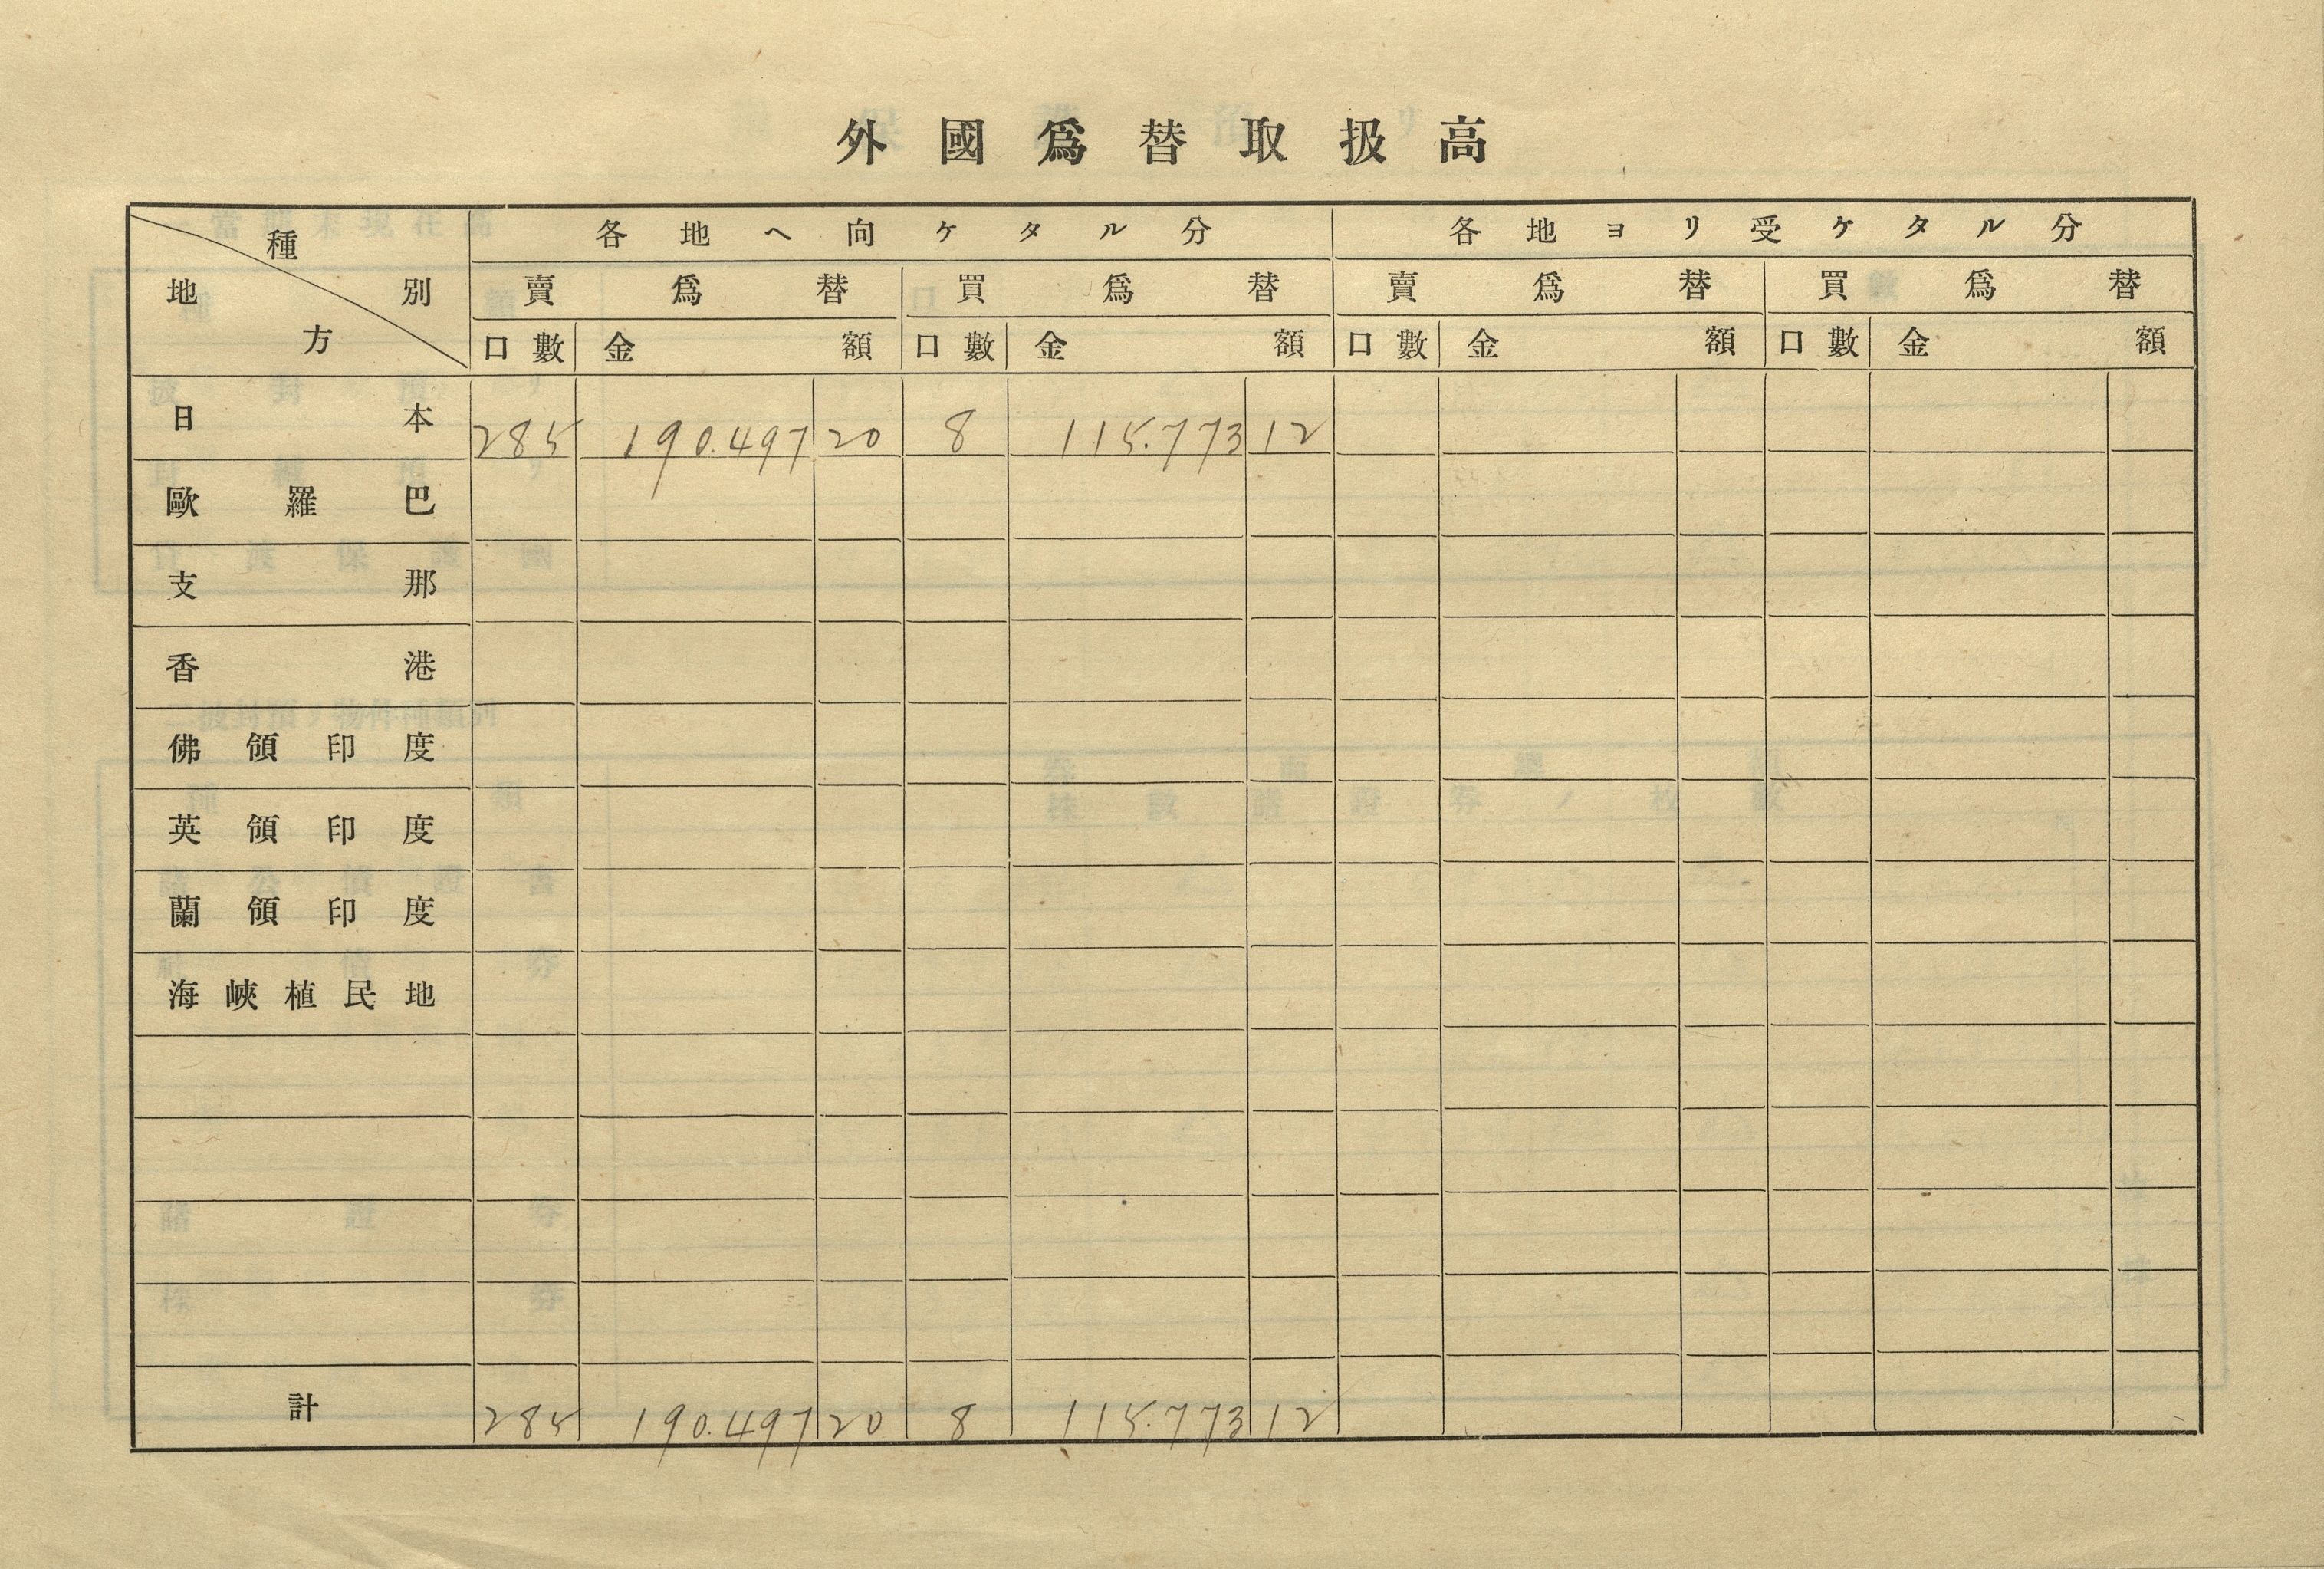 外國爲替取扱高
種別 地方 各地ヘ向ケタル分 各地ヨリ受ケタル分
賣爲替 買爲替 賣爲替 買爲替
口數 金額 口數 金額 口數 金額 口數 金額
日本 285 190.497 20 8 115.773 12
歐羅巴
支那
香港
佛領印度
英領印度
蘭領印度
海峽植民地
計 285 190.497 20 8 115.773 12